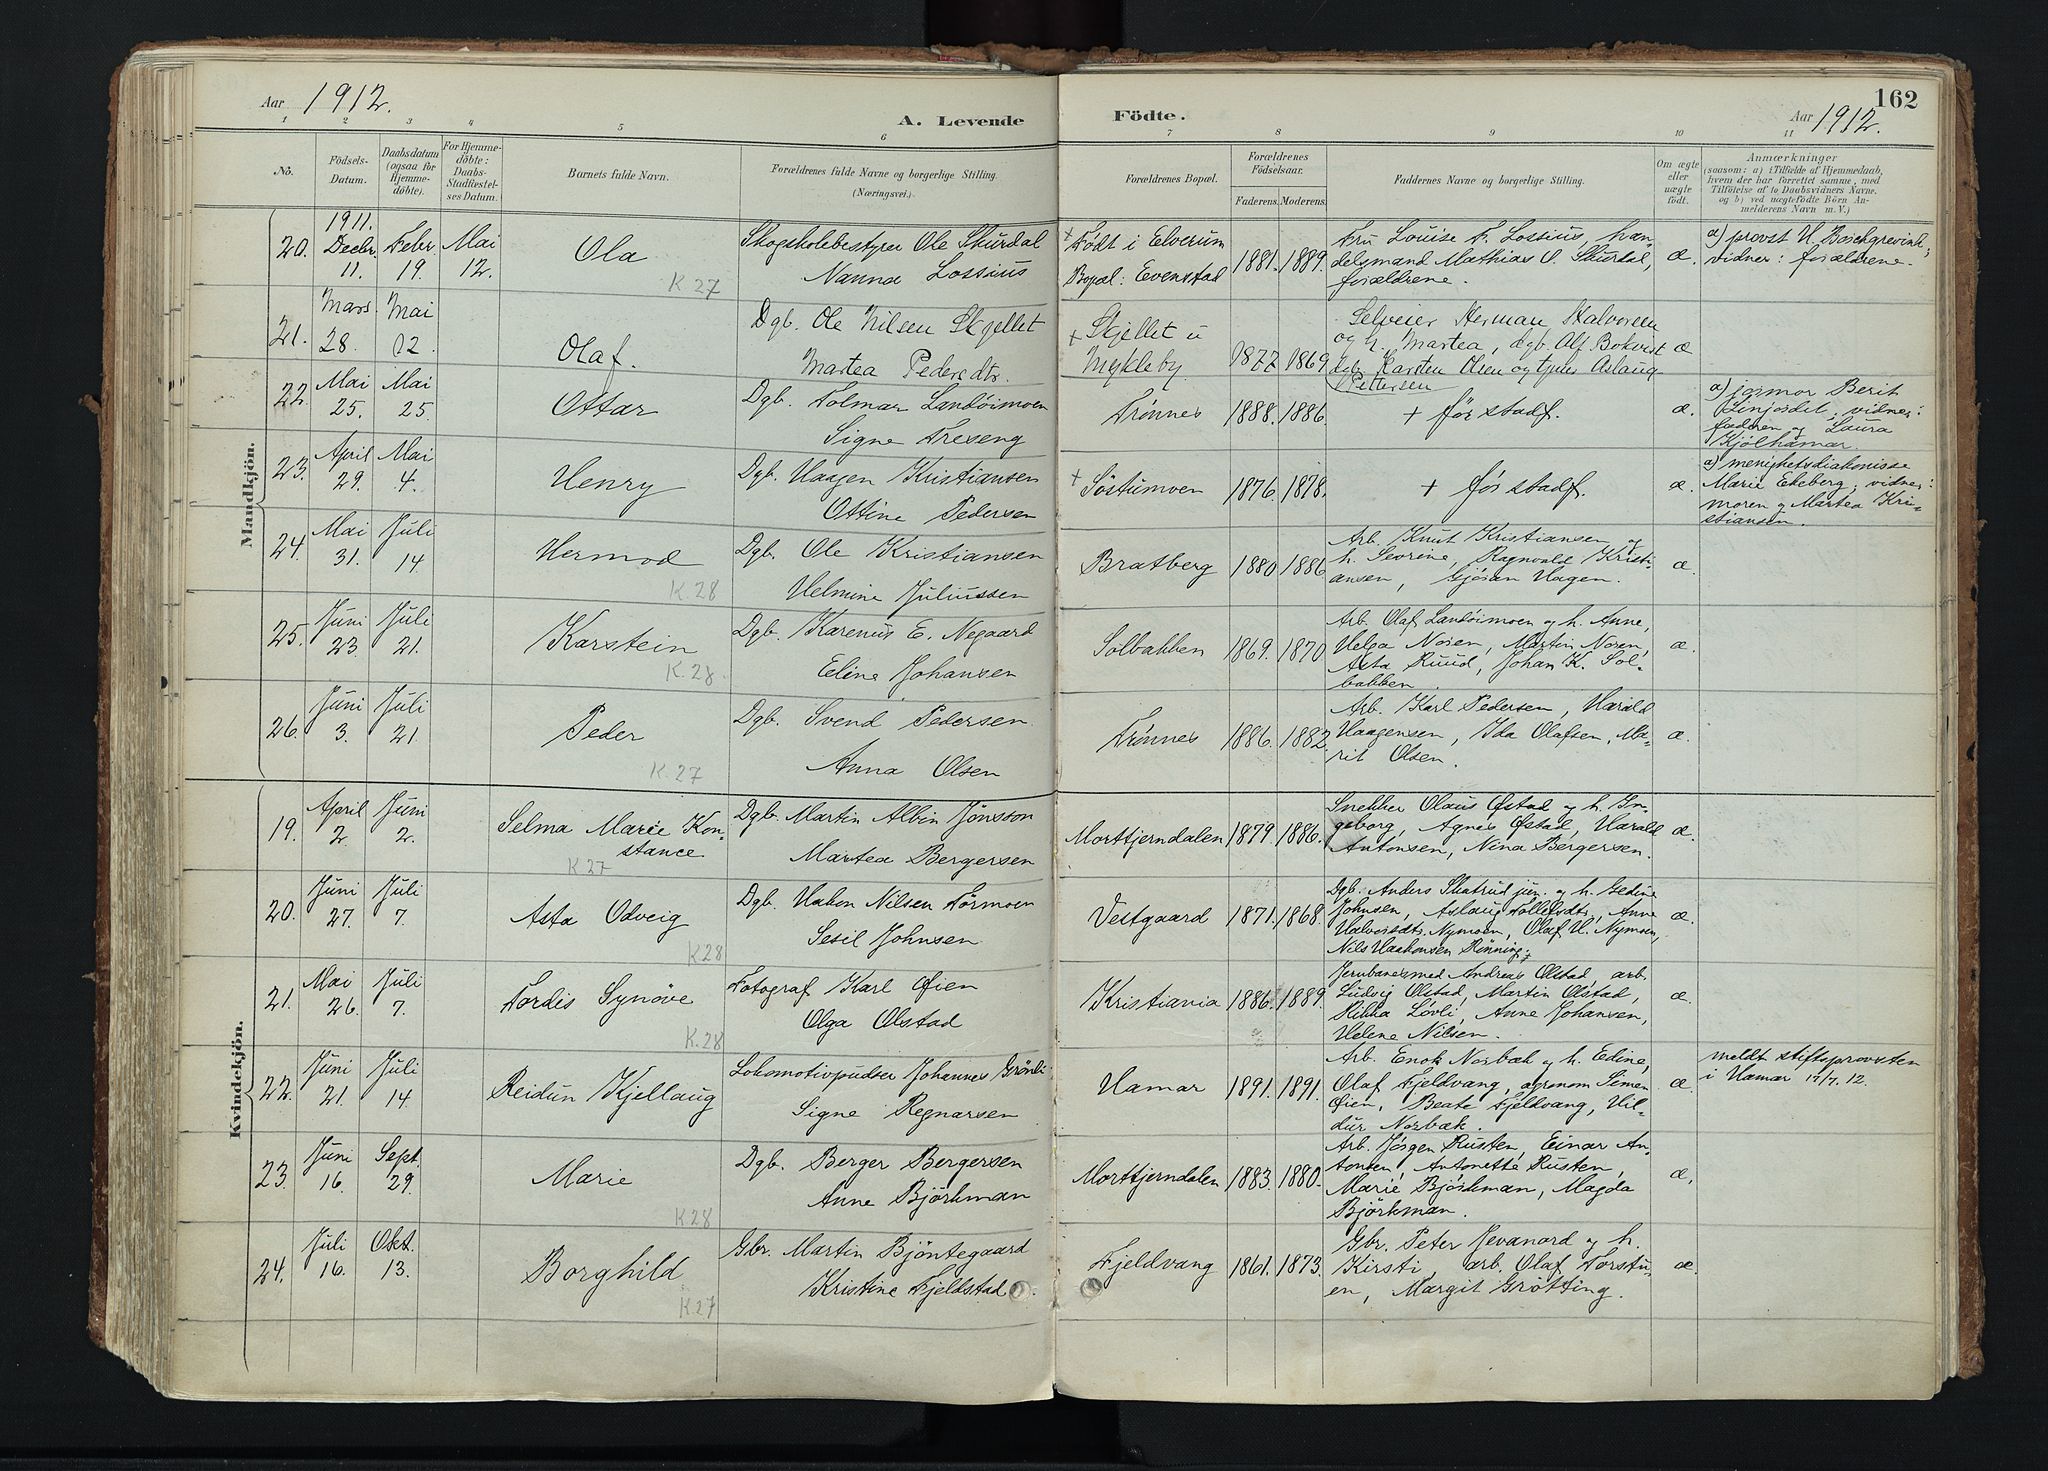 Aar 1912.
A. Levende Födte.
Aar 1912.
162
1 2 3 4 5 6 7 8 9 10 11
No.
Födsels-Datum.
Daabsdatum (ogsaa for Hjemme-döbte).
For Hjemme-döbte: Daabs-Stadfæstel-ses Datum.
Barnets fulde Navn.
Forældrenes fulde Navne og borgerlige Stilling. (Næringsvei.)
Forældrenes Bopæl.
Forældrenes Födselsaar.
Faderens. Moderens.
Faddernes Navne og borgerlige Stilling.
Om ægte eller uægte födt.
Anmærkninger
(saasom: a) i Tilfælde af Hjemmedaab,
hvem der har forrettet samme, med
Tilföielse af to Daabsvidners Navne.
og b) ved uægtefödte Börn An-
melderens Navn m. V.)
Mandkjön.
20. 1911. Decbr. 11. Febr. 19. Mai 12. Ola K 27
Skogskolebestyrer Ole Skurdal
Nanna Lossius
+ Född i Elverum
Bopæl: Evenstad
1881. 1889.
Fru Louise F. Lossius, han-
delsmand Mathias O. Skurdal,
forældrene.
æ.
a) provst H. Borchgrevink;
vidner: forældrene.
21. Mars 28. Mai 12. Olaf.
Dgb. Ole Nilsen Skjellet
Martea Pedersdtr.
+ Skjellet u
Mykleby
1877 1869
Selveier Herman Halvorsen
og h. Martea, dgb. Alf Bokvist
dgb. Karsten Olsen og tjener Aslaug
Pettersen
æ
22. Mai 25. Mai 25 Ottar
Dgb. Folmar Landöimoen
Signe Treseng
Trønnes
1888. 1886.
+ før stadf.
æ.
a) jormor Berit
Linjordet; vidner:
faderen og Laura
Kjölhamar.
23. April 29. Mai 4. Henry
Dgb. Haagen Kristiansen
Ottine Pedersen
+ Söstumoen
1876. 1878.
+ før stadf.
æ.
a) menighetsdiakonisse
Marie Ekeberg; vidner:
moren og Martea Kri-
stiansen.
24. Mai 31. Juli 14. Hermod K. 28
Dgb. Ole Kristiansen
Helmine Juliussen
Bratberg
1880 1886
Arb. Knut Kristiansen og
h. Sevrine, Ragnvald Kristi-
ansen, Gjøran Hagen.
æ.
25. Juni 23. Juli 21. Karstein K. 28.
Dgb. Karenus E. Negaard
Eline Johansen
Solbakken
1869. 1870
Arb. Olaf Landöimoen og h. Anne,
Helga Noren, Martin Noren,
Asta Ruud, Johan K. Sol-
bakken.
æ.
26. Juni 3. Juli 21. Peder K. 27
Dgb. Svend Pedersen
Anna Olsen
Trønnes
1886. 1882
Arb. Karl Pedersen, Harald
Haagensen, Ida Olafsen, Ma-
rit Olsen.
æ.
Kvindekjön.
19. April 2. Juni 2. Selma Marie Kon-
stance K 27
Dgb. Martin Albin Jönsson
Martea Bergersen
Morttjerndalen
1879 1886.
Snekker Olaus Østad og h. In-
geborg, Agnes Østad, Harald
Antonsen, Nina Bergersen.
æ.
20. Juni 27. Juli 7. Asta Odveig K 28
Dgb. Hakon Nilsen Tørmoen
Sesil Johnsen
Vestgaard
1871. 1868.
Dgb. Anders Skatrud jun. og h. Gedine
Johnsen, Aslaug Tollefsdtr., Anne
Halvorsdtr. Nymoen, Olaf H. Nymoen,
Nils Haakonsen Rønning.
æ.
21. Mai 26. Juli 7. Tordis Synöve K. 28
Fotograf Karl Øien
Olga Olstad
Kristiania
1886. 1889.
Jernbanesmed Andreas Olstad arb.
Ludvig Olstad, Martin Olstad,
Rikka Løvli, Anne Johansen,
Helene Nilsen.
æ.
22. Juni 21. Juli 14. Reidun Kjellaug
Lokomotivpudser Johannes Grönli
Signe Regnarsen
Hamar
1891. 1891.
Arb. Enok Norbæk og h. Edine,
Olaf Fjeldvang, agronom Simen
Øien, Beate Fjeldvang, Hil-
dur Norbæk.
æ.
meldt stiftsprovsten
i Hamar 17/7. 12.
23. Juni 16. Sept. 29. Marie K 28
Dgb. Berger Bergersen
Anne Björkman
Morttjerndalen
1883. 1880.
Arb. Jörgen Rusten, Einar An-
tonsen, Antonette Rusten,
Marie Björkman, Magda
Björkman.
æ.
24. Juli 16. Okt. 13. Borghild K 27
Gbr. Martin Bjöntegaard
Kristine Fjeldstad.
Fjeldvang
1861. 1873.
Gbr. Peter Jevanord og h.
Kirsti, arb. Olaf Torstu-
en, Margit Grötting.
æ.